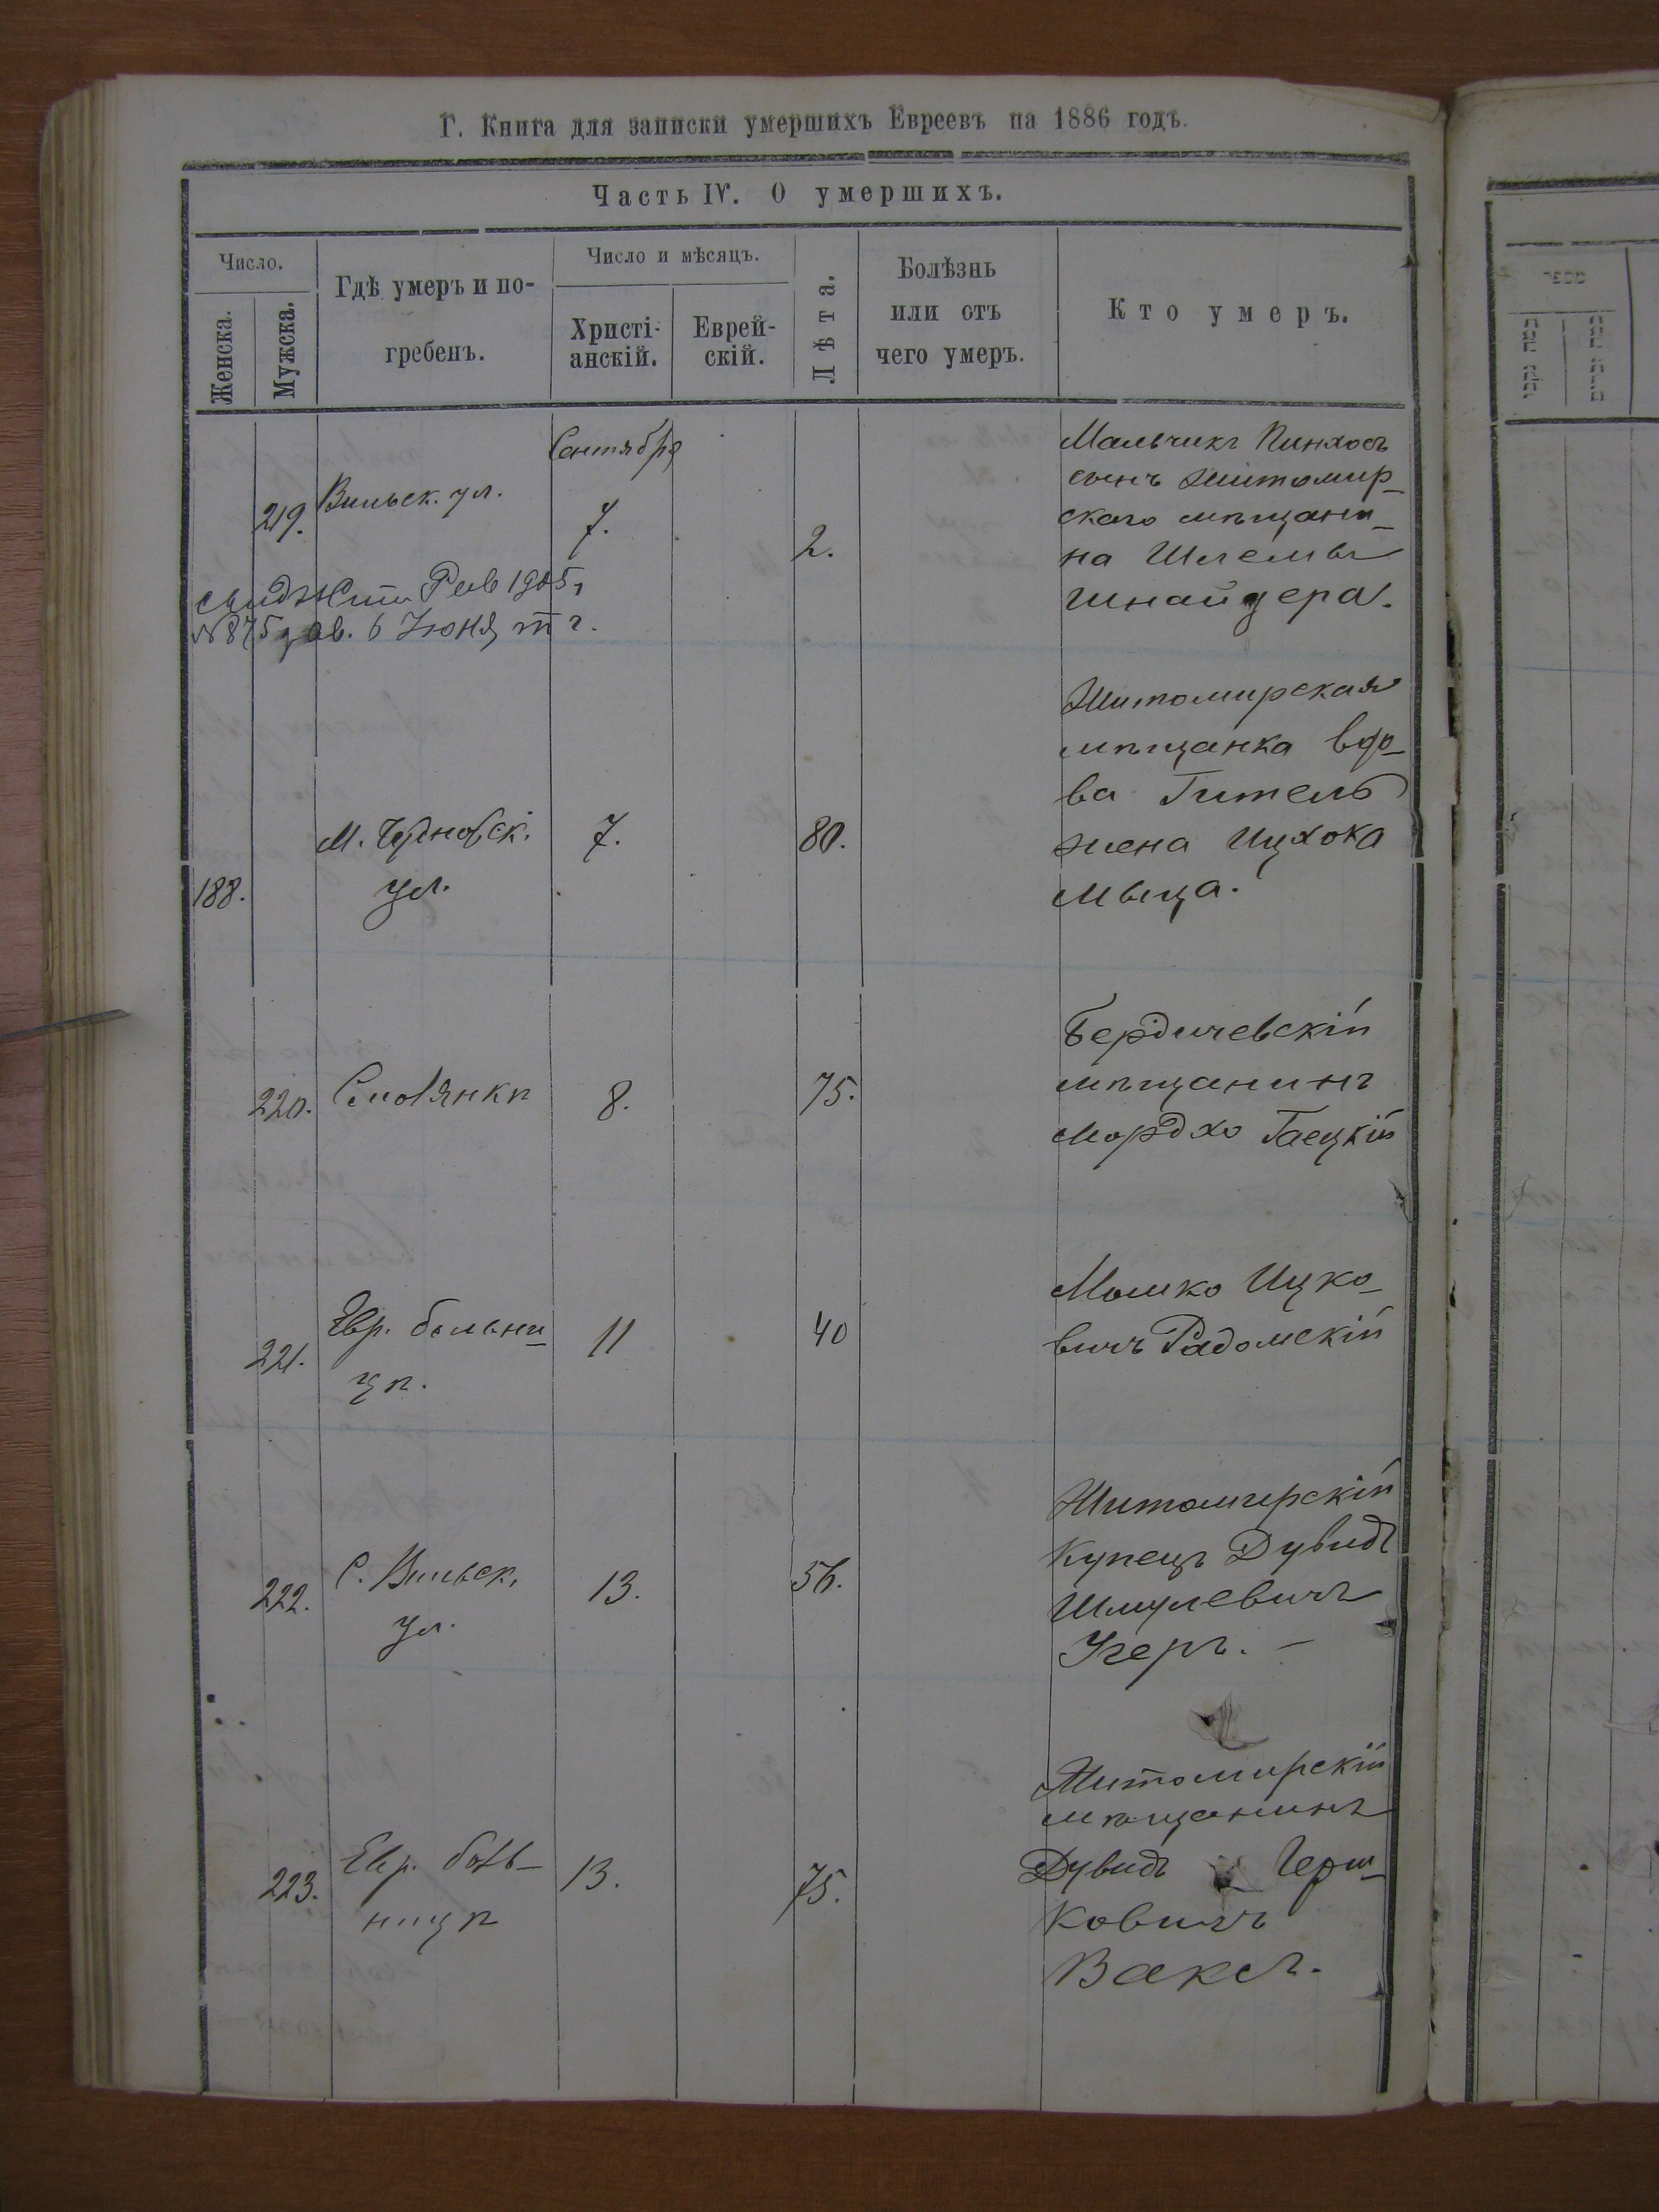 Г. Книга для записки умершихъ Евреевъ на 1886 годъ.
Часть IV. О умершихъ.
Число.
Женска.
Мужска.
Гдѣ умеръ и по-
гребенъ.
Число и мѣсяцъ.
Христі-
анскій.
Еврей-
скій.
Лѣта.
Болѣзнь
или отъ
чего умеръ.
Кто умеръ.
Сентября
219.
Вильск. ул.
7.
2.
Мальчикъ Пинхосъ
сынъ Житомир-
скаго мѣщани-
на Шлемы
Шнайдера.
1905
№ 875 6 Іюня т г.
188.
М. Чудновск.
ул.
7.
80.
Житомирская
мѣщанка вдо-
ва Гитель
жена Ицхока
220.
Смолянкѣ
8.
75.
Бердичевскій
мѣщанинъ
Мордхо Гаецкій
221.
Евр. больни-
цѣ.
11
40
Мошко Ицко-
вичъ Радомскій
222.
С. Вильск.
ул.
13.
56.
Житомирскій
Купецъ Дувидъ
Шмулевичъ
Угеръ. -
223.
Евр. боль-
ницѣ
13.
75.
Житомирскій
мѣщанинъ
Дувидъ Герш-
ковичъ
Ваксъ.
מספר